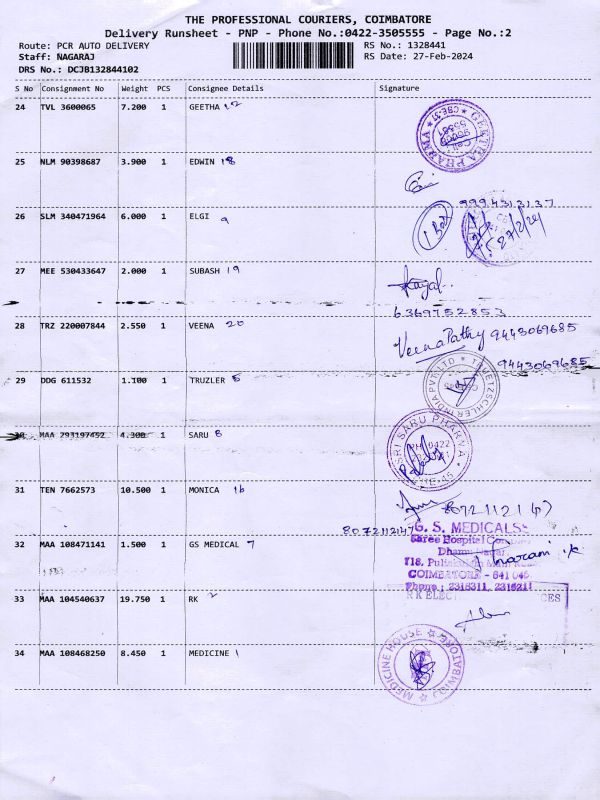 THE PROFESSIONAL COURIERS, COIMBATORE
Delivery Runsheet - PNP - Phone No.:0422-3505555 - Page No.:2
Route: PCR AUTO DELIVERY
RS No.: 1328441
Staff: NAGARAJ
RS Date: 27-Feb-2024
DRS No.: DCJB132844102
S No Consignment No Weight PCS Consignee Details Signature
24 TVL 3600065 7.200 1 GEETHA 12
GEETHA PHARMA
25 NLM 90398687 3.900 1 EDWIN 18
9994313137
26 SLM 340471964 6.000 1 ELGI 9
1 Box
27/2/24
27 MEE 530433647 2.000 1 SUBASH 19
6369752853
28 TRZ 220007844 2.550 1 VEENA 20
VeenaPathy 9443069685
9443069685
29 DDG 611532 1.100 1 TRUZLER 5
TRUETZSCHLER INDIA PVT LTD
30 MAA 793197452 4.300 1 SARU 8
SRI SARU PHARMA
31 TEN 7662573 10.500 1 MONICA 16
8072112147
8072112147
32 MAA 108471141 1.500 1 GS MEDICAL 7
G. S. MEDICALS
Saree Hospital
COIMBATORE - 641 045
Phone : 2316311, 2316211
33 MAA 104540637 19.750 1 RK 2
RK
34 MAA 108468250 8.450 1 MEDICINE 1
MEDICINE HOUSE COIMBATORE